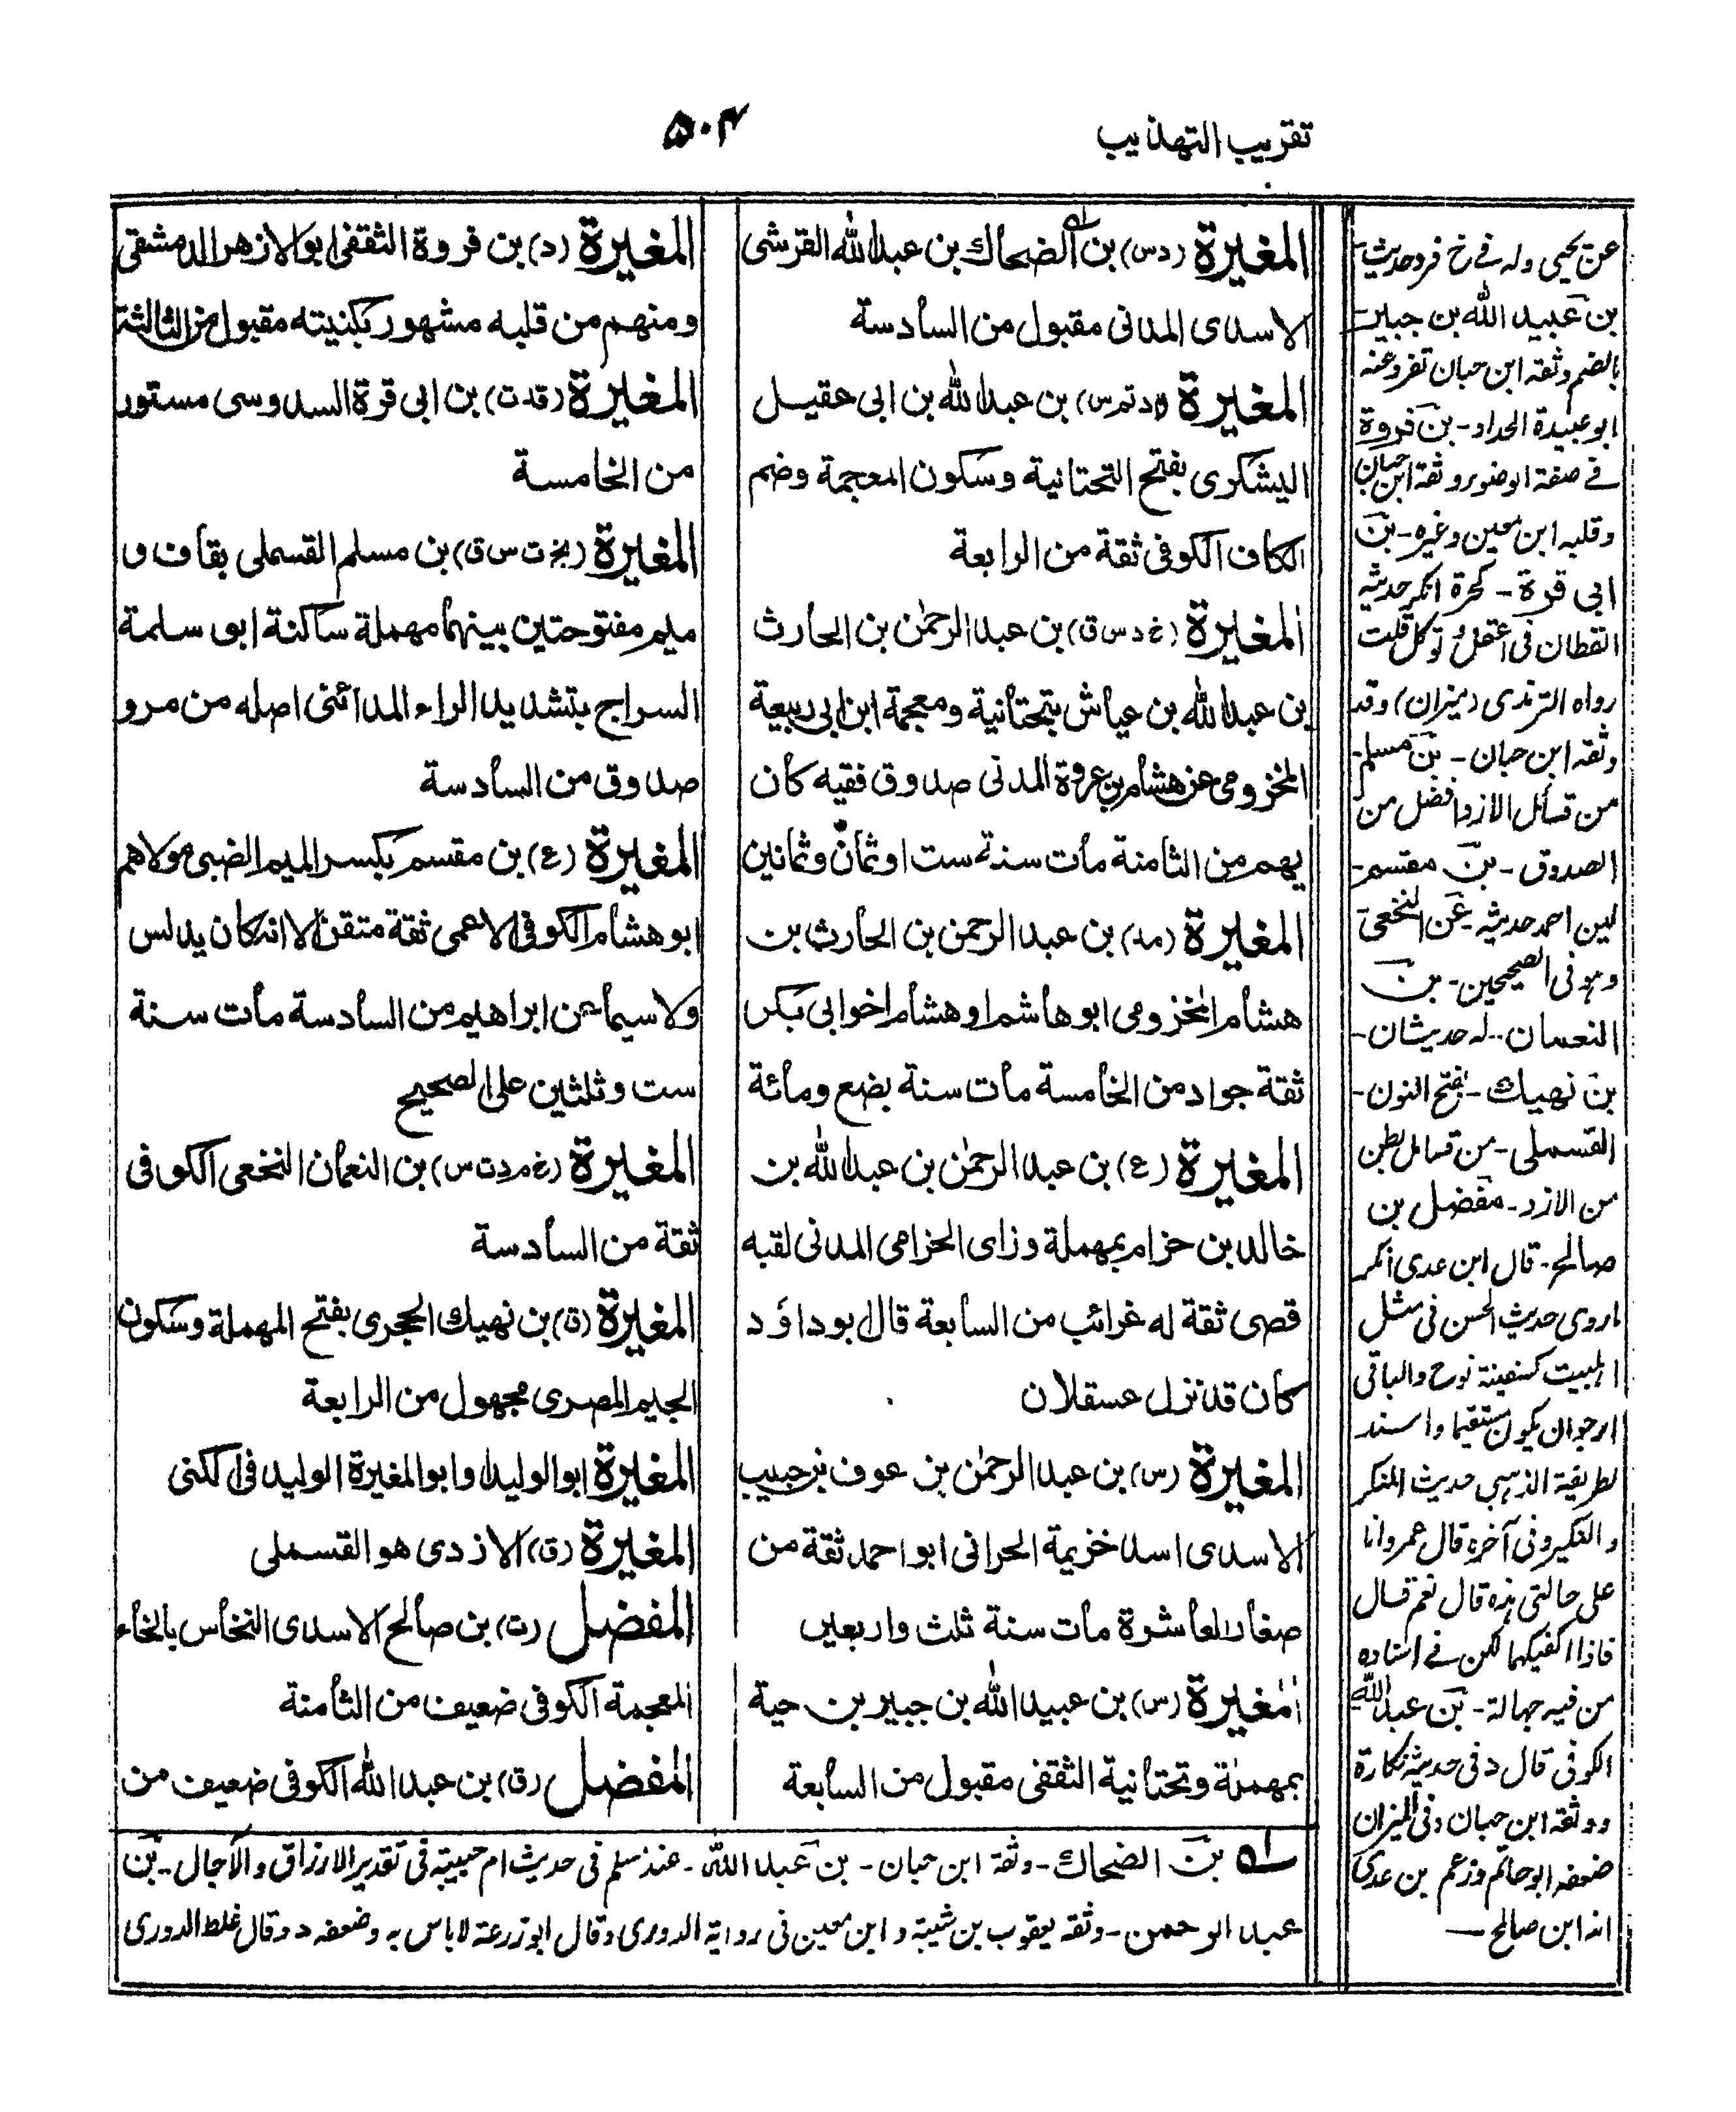 تقريب التهذيب
۵۰۴
المغيرة (دس) بن الضحاك بن عبدالله القرشى
الاسدى المدنى مقبول من السادسة
المغيرة (م د تم س) بن عبدالله بن ابى عقيل
اليشكرى بفتح التحتانية وسكون المعجمة وضم
الكاف الكوفى ثقة من الرابعة
المغيرة (خ د س ق) بن عبد الرحمٰن بن الحارث
بن عبدالله بن عياش بتحتانية ومعجمة ابن ابى ربيعة
المخزومى عن هشام بن عروة المدنى صدوق فقيه كان
يهم من الثامنة مات سنة ست او ثمان وثمانين
المغيرة (مد) بن عبد الرحمن بن الحارث بن
هشام المخزومى ابو هاشم او هشام اخو ابى بكر
ثقة جواد من الخامسة مات سنة بضع ومائة
المغيرة (ع) بن عبد الرحمٰن بن عبدالله بن
خالد بن حزام بمهملة وزاى الحزامى المدنى لقبه
قصى ثقة له غرائب من السابعة قال بو داؤد
كان قد نزل عسقلان
المغيرة (س) بن عبد الرحمٰن بن عوف بن حبيب
الاسدى اسد خزيمة الحرانى ابو احمد ثقة من
صغار العاشرة مات سنة ثلث واربعين
المغيرة (س) بن عبيد الله بن جبير بن حية
بمهملة وتحتانية الثقفى مقبول من السابعة
المغيرة (د) بن فروة الثقفى ابو الازهر الدمشقى
ومنهم من قلبه مشهور بكنيته مقبول من الثالثة
المغيرة (قد ت) بن ابى قرة السدوسى مستور
من الخامسة
المغيرة (بخ ت س ق) بن مسلم القسملى بقاف و
ميم مفتوحتين بينهما مهملة ساكنة ابو سلمة
السراج بتشديد الراء المدائنى اصله من مرو
صدوق من السادسة
المغيرة (ع) بن مقسم بكسر الميم الضبى مولاهم
ابو هشام الكوفى الاعمى ثقة متقن الا انه كان يدلس
ولا سيما عن ابراهيم من السادسة مات سنة
ست وثلثين على الصحيح
المغيرة (خ م د ت س) بن النعمان النخعى الكوفى
ثقة من السادسة
المغيرة (ق) بن نهيك الحجرى بفتح المهملة وسكون
الجيم المصرى مجهول من الرابعة
المغيرة ابو الوليد او ابو المغيرة الوليد فى الكنى
المغيرة (ق) الازدى هو القسملى
المفضل (ت) بن صالح الاسدى النخاس بالخاء
المعجمة الكوفى ضعيف من الثامنة
المفضل (ق) بن عبد الله الكوفى ضعيف من
عن يحيى وله فے خ فرد حديث-
بن عبيد الله بن جبير-
بالضم وثقه ابن حبان تفرد عنه
ابو عبيدة الحداد - بن فروة
فے صفة الوضوء وثقه ابن حبان
وقلبه ابن معين وغيره - بن
ابى قرة - كحرة انكر حديثه
القطان فى اعقل و توكل قلت
رواه الترمذى (ميزان) وقد
وثقه ابن حبان - بن مسلم-
من قسامل الازد افضل من
الصدوق - بن مقسم-
لين احمد حديثه عن النخعى
وهو فى الصحيحين - بن
النعمان - له حديثان -
بن نهيك - بفتح النون -
القسملى - من قسامل بطن
من الازد - مفضل بن
صالح - قال ابن عدى انكر
ما روى حديث الحسن فى مثل
اهلبيت كسفينة نوح والباقى
ارجو ان يكون مستقيما واسند
لطريقه الذهبى حديث المنكر
والنكير وفى آخره قال عمر وانا
على حالتى هذه قال نعم قال
فاذا اكفيكهما لكن فے اسناده
من فيه جهالة - بن عبد الله
الكوفى قال د فى حديثه نكارة
ووثقه ابن حبان وفى الميزان
ضعفه ابو حاتم وزعم بن عدى
انه ابن صالح —
ﻟﻪ بن الضحاك - وثقه ابن حبان - بن عبد الله - عند مسلم فى حديث ام حبيبة فى تقدير الارزاق والآجال - بن
عبد الرحمن - وثقه يعقوب بن شيبة وابن معين فى رواية الدورى وقال ابو زرعة لا باس به وضعفه د وقال غلط الدورى